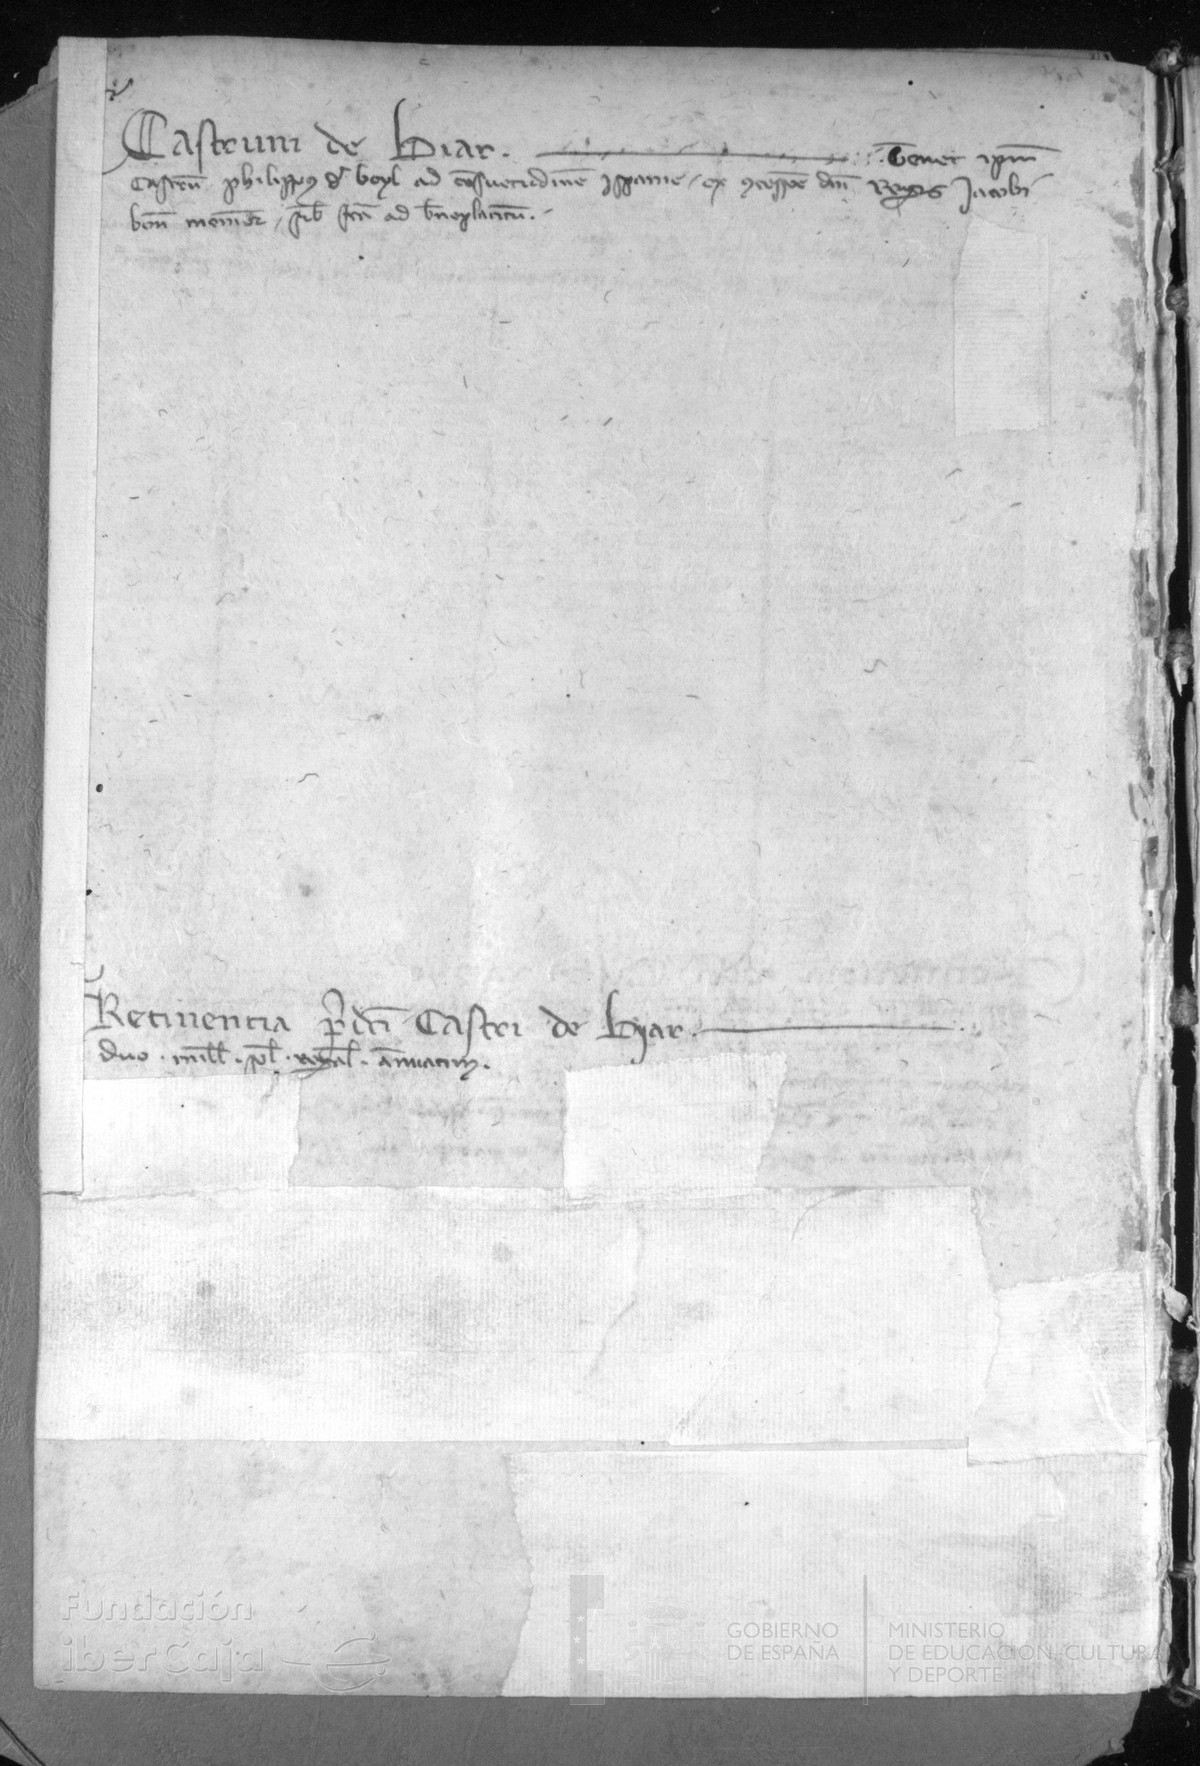 Castrum de Biar. Tenet ipm̄
Castrū philippus de boyl ad cōsuetudinē ispanie / ex ꝯcessiōe dn̄i Regis Jacobi
bon̄ memor̄ / ad bn̄eplacitū.
Retinencia p̄dc̄i Castri de Byar.
duo . mill . sol . regal . annuatim.
Fundación
iberCaja
GOBIERNO
DE ESPAÑA
MINISTERIO
DE EDUCACIÓN, CULTURA
Y DEPORTE